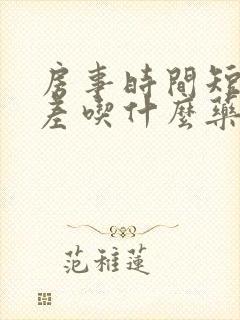 房事時間短
差喫什麼藥
范雅蓮